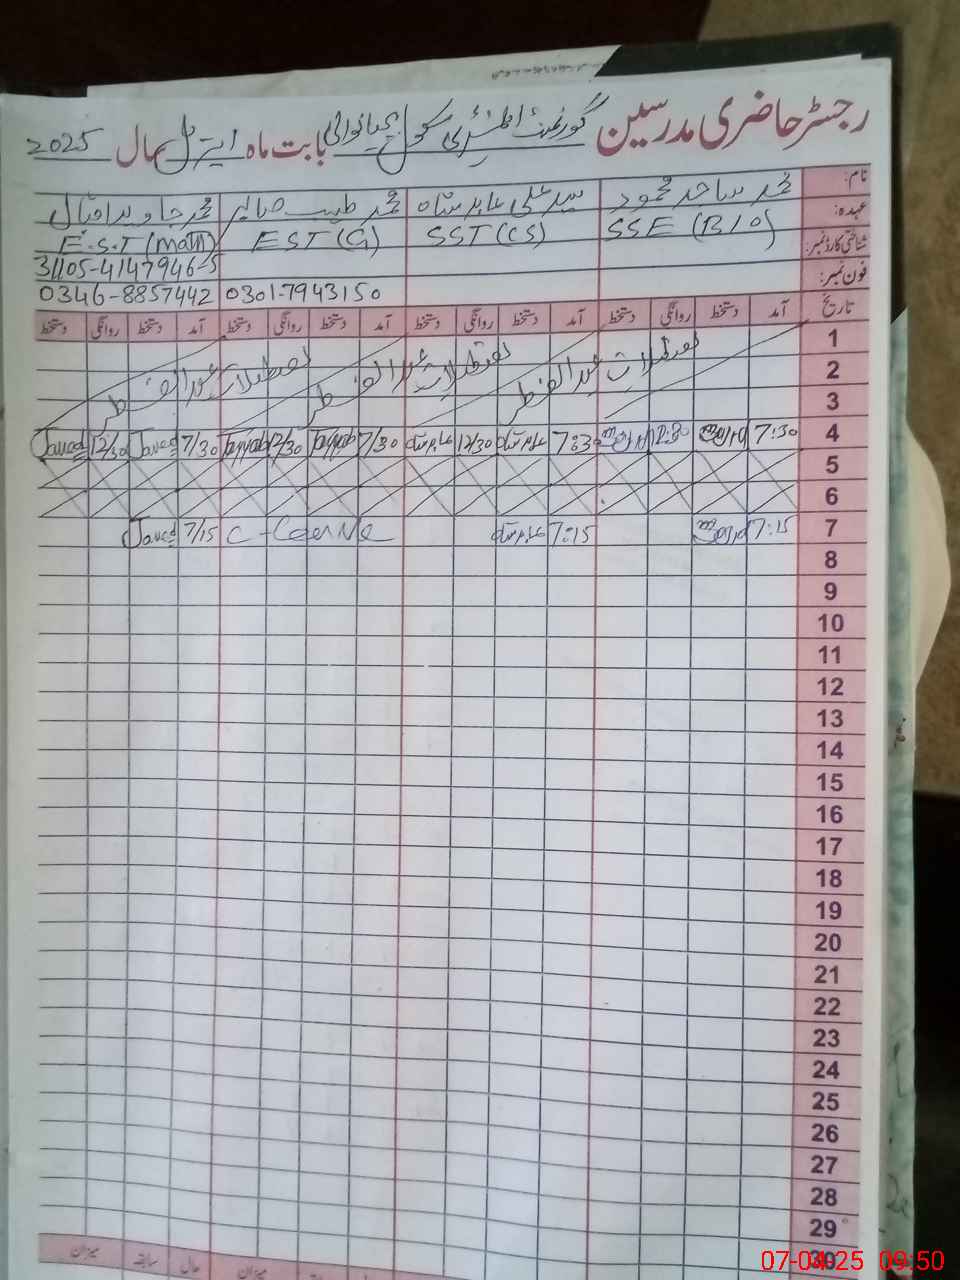 رجسٹر حاضری مدرسین گورنمنٹ ایلیمنٹری سکول بابت ماہ اپریل سال 2025
نام: محمد ساجد محمود سید علی عابد شاہ محمد طیب صابر محمد جاوید اقبال
عہدہ: SSE (BIO) SST (CS) EST (G) E.S.T (math)
شناختی کارڈ نمبر: 31105-4147946-5
فون نمبر: 0301-7943150 0346-8857442
تاریخ آمد دستخط روانگی دستخط آمد دستخط روانگی دستخط آمد دستخط روانگی دستخط آمد دستخط روانگی دستخط
1
2 تعطیلات عید الفطر تعطیلات عید الفطر تعطیلات عید الفطر
3
4 7:30 12:30 7:30 عابد شاہ 12/30 عابد شاہ 7/30 Tayyab 12/30 Tayyab 7/30 Javed 12/30 Javed
5
6
7 7:15 7:15 عابد شاہ C-Leave 7/15 Javed
8
9
10
11
12
13
14
15
16
17
18
19
20
21
22
23
24
25
26
27
28
29
30
میزان حال سابقہ میزان
07-04-25 09:50